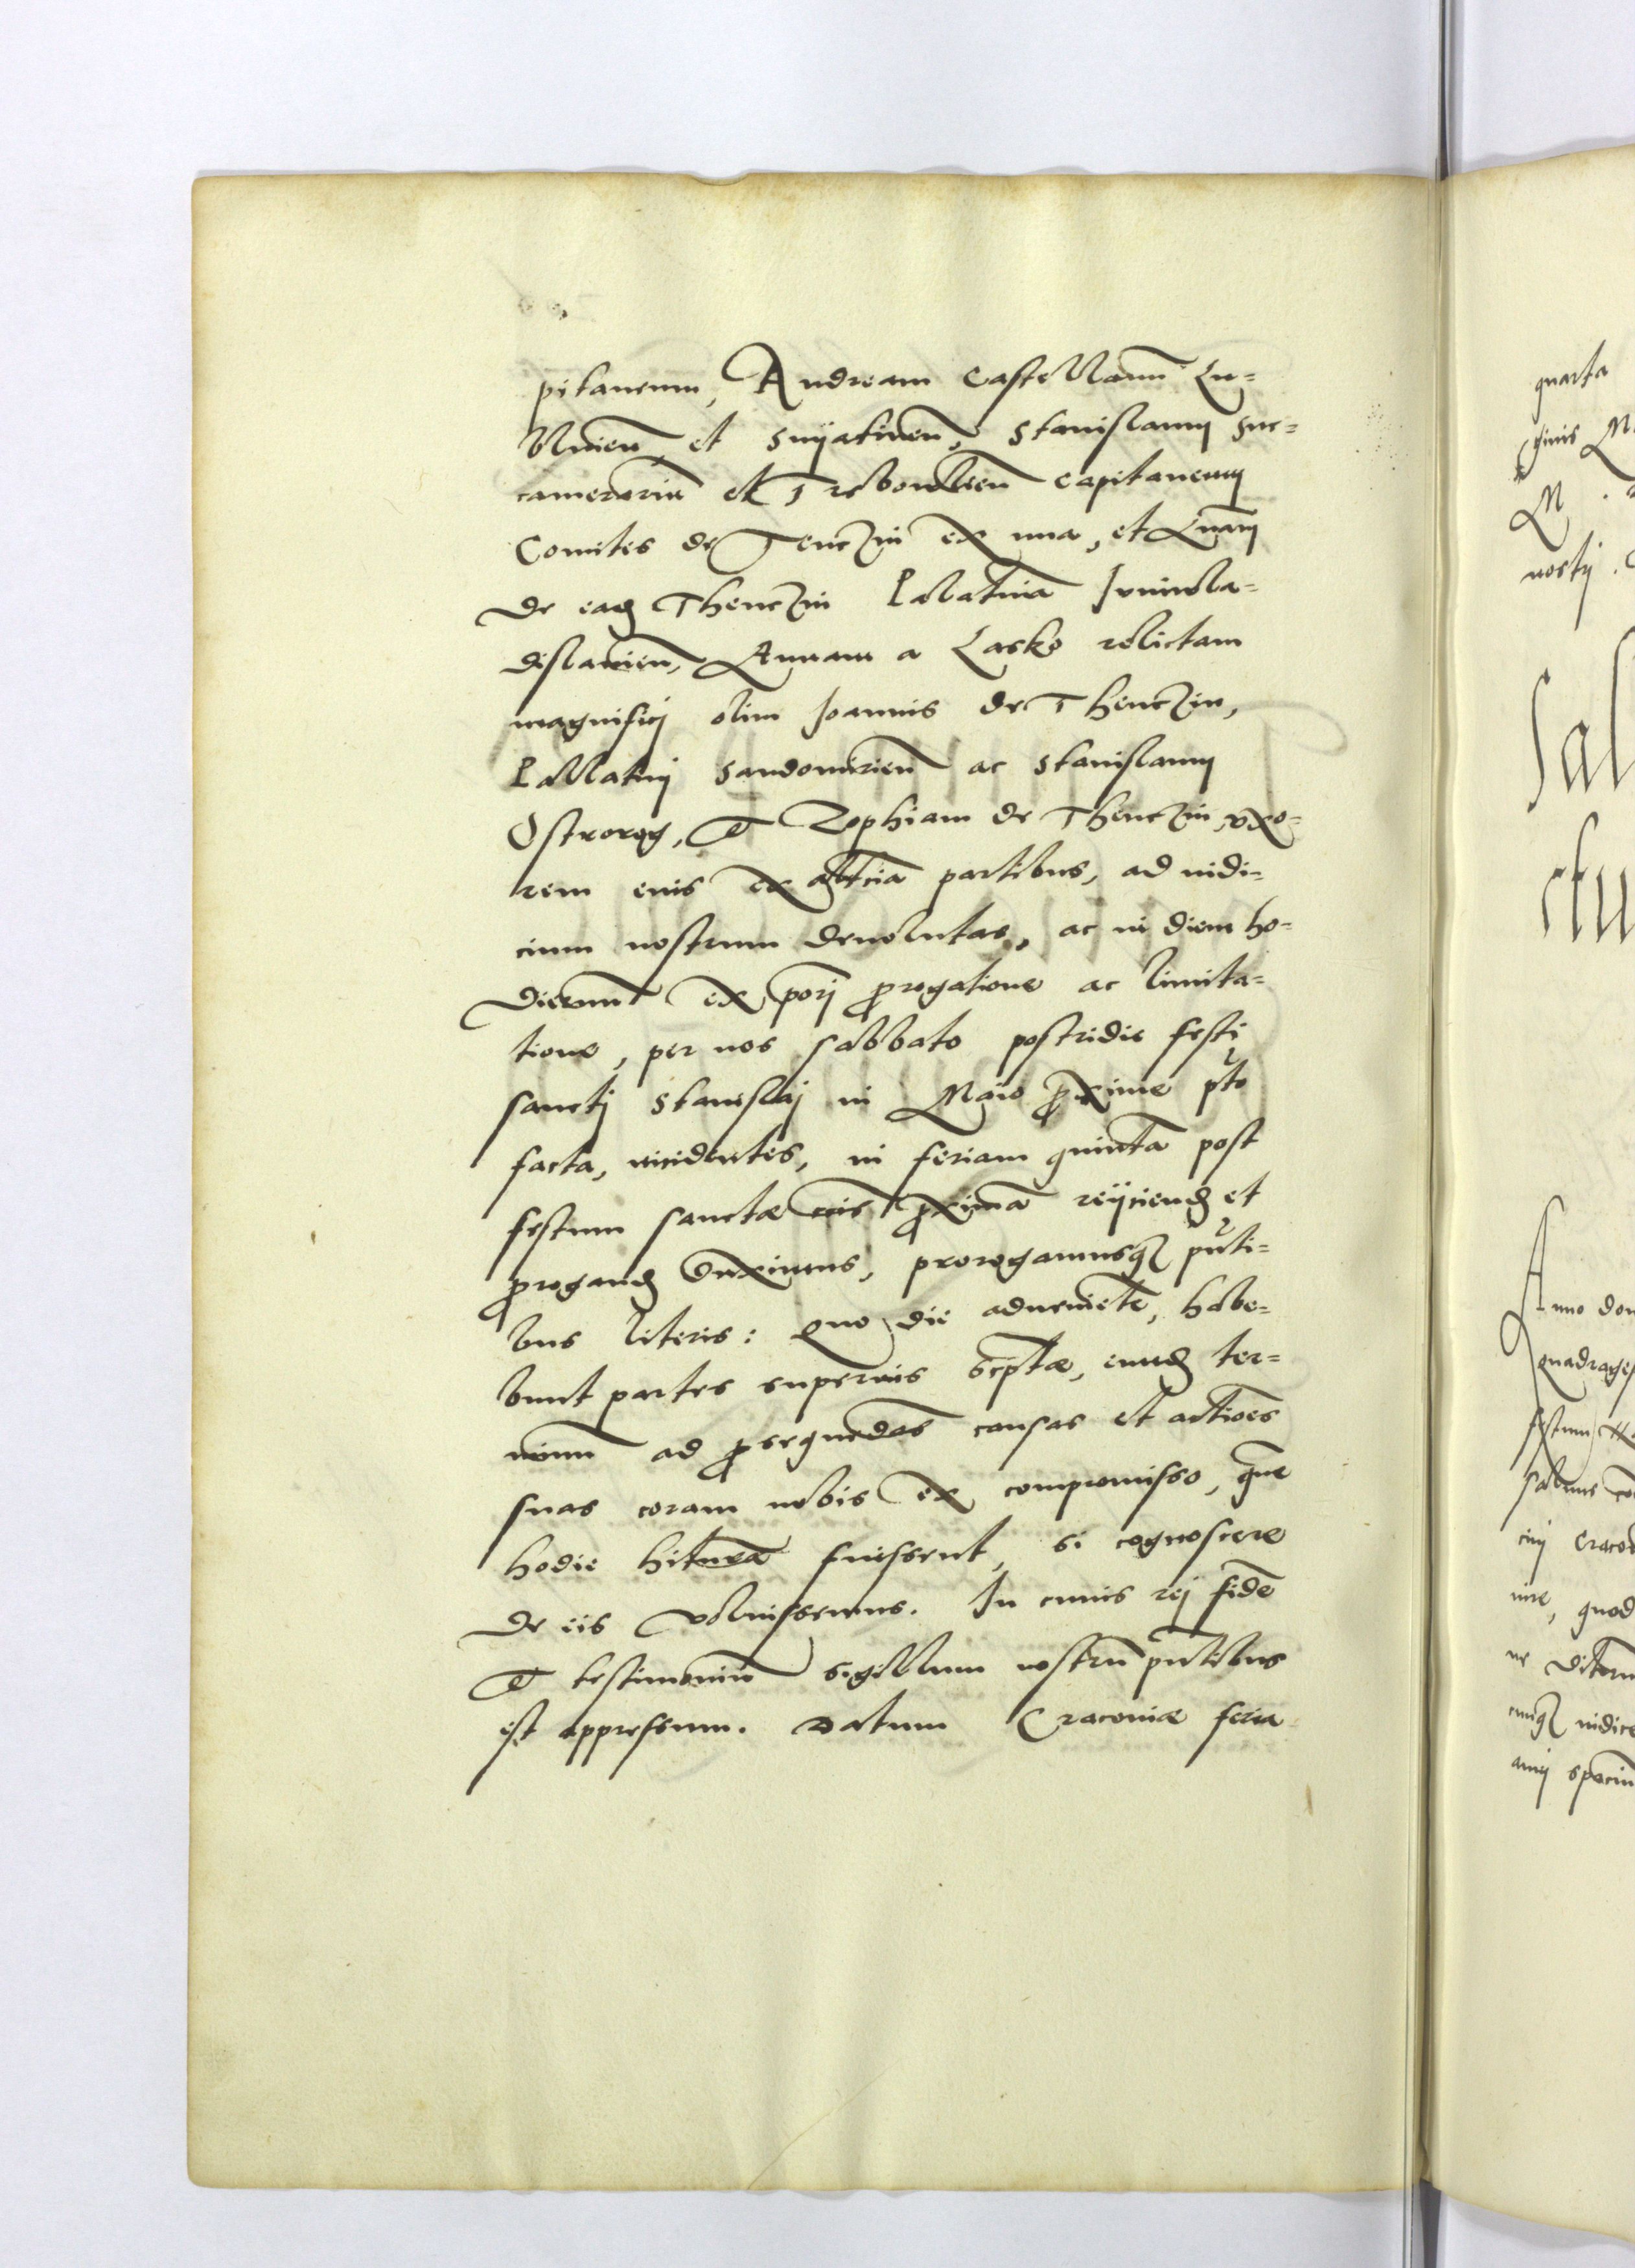 pitaneum, Andream Castellanũ Lu=
blinień et Snÿatineń, Stanislaum Suc=
camerariũ et Trebowlień Capitaneum
Comites de Tenczin ex una, et Annam
de eadẽ Thenczin Palatinã Juniwla=
dislauień, Annam a Lasko relictam
magnificj olim Joannis de Thenczin,
Pallatinj Sandomirień ac Stanislaum
Ostrorog, et Zophiam de Thenczin, vxo=
rem eius ex altera partibus, ad iudi=
cium nostrum deuolutas, ac in diem ho=
diernũ ex priorj prorogatione ac limita=
tione, per nos sabbato postridie festi
sanctj Stanislaj in Maio proxime pto
facta, incidentes, in feriam quintã post
festum sanctæ crucis proximã reÿciend et
prorogand duximus, prorogamusq3 pnti=
bus literis: Quo die adueniẽte, habe=
bunt partes superius scptæ, eund ter=
minũ ad prosequẽdas causas et actiões
suas coram nobis ex compromisso, quẽ
hodie hituræ fuissent, si cognoscere
de iis voluissemus. In cuius rej fidẽ
et testimoniũ sigillum nostrũ pntibus
est appressum. Datum Cracouiæ feria
quarta
ginis M
M
nostrj
Sal
ctu
Anno dom
quadrages
festum
cuj Craco
iure, quod